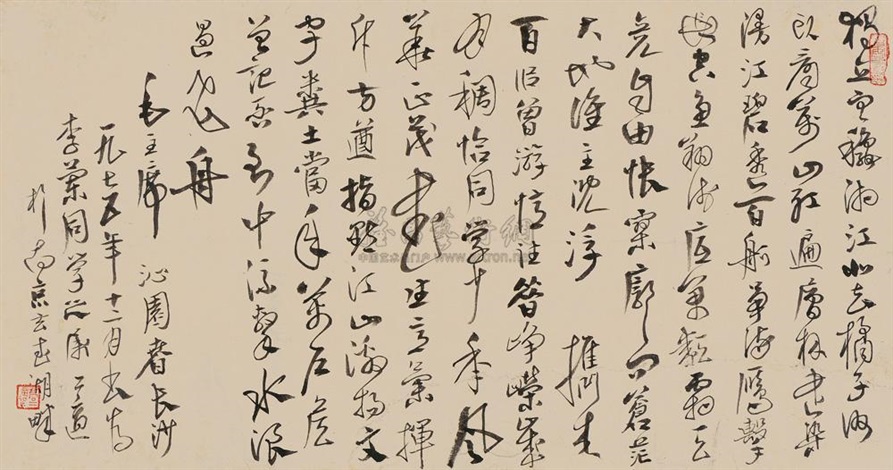 獨立寒穐湘江北去橘子洲
頭看萬山红遍層林尽染
漫江碧透百舸争流鷹擊
長空魚翔浅底萬類霜天
竞自由怅寥廓问蒼茫
大地谁主沈浮 携来
百侣曾游忆往昔峥嵘歲
月稠恰同学少年風
華正茂书生意气揮
斥方遒指點江山激扬文
字糞土當年萬户侯
曾記否到中流擊水浪
遏飛舟
毛主席 沁園春长沙
一九七五年十二月书为
李蘭同学
於南京玄武湖畔